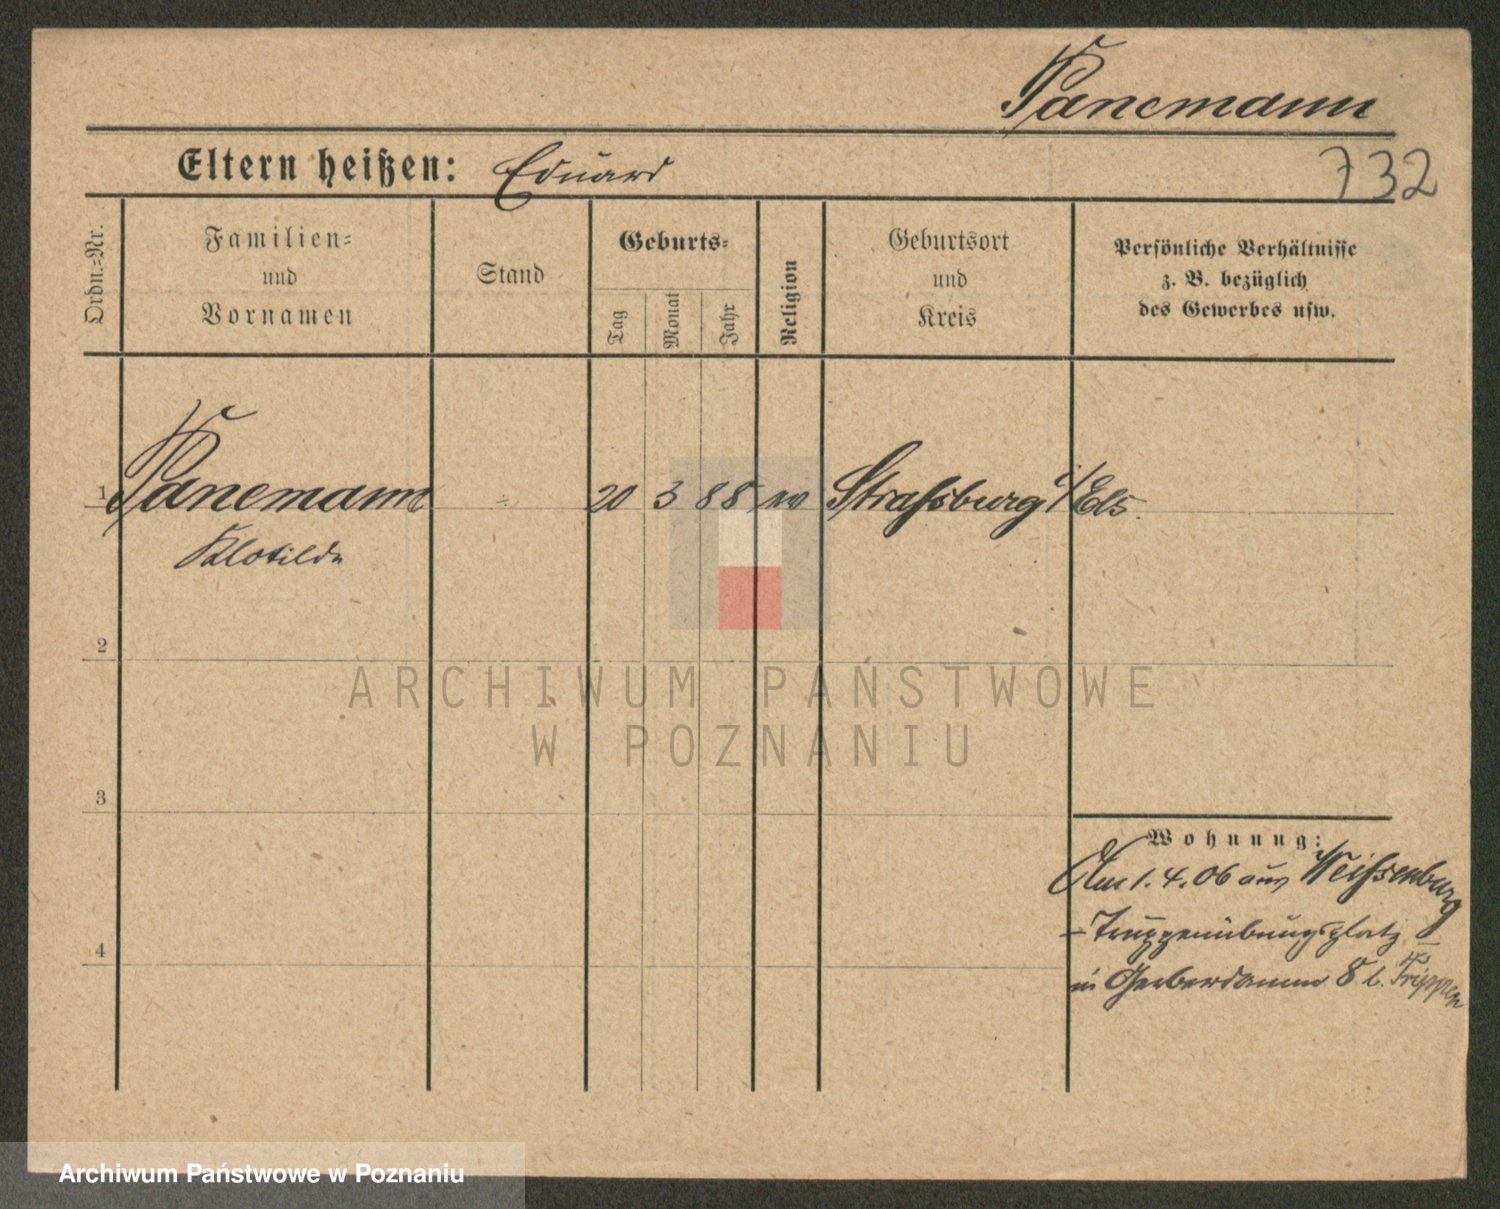 Panemann
Eltern heißen: Eduard
732
Ordn.-Nr.
Familien-
und
Vornamen
Stand
Geburts-
Tag
Monat
Jahr
Religion
Geburtsort
und
Kreis
Persönliche Verhältnisse
z. B. bezüglich
des Gewerbes usw.
1 Panemann 20 3 88 Strassburg i/Els.
Klotilde
2
ARCHIWUM PAŃSTWOWE
W POZNANIU
3
Wohnung:
Am 1.4.06 aus Weissenburg
- Truppenübungsplatz -
in Gerberdamm 8 b. Trippen
4
Archiwum Państwowe w Poznaniu